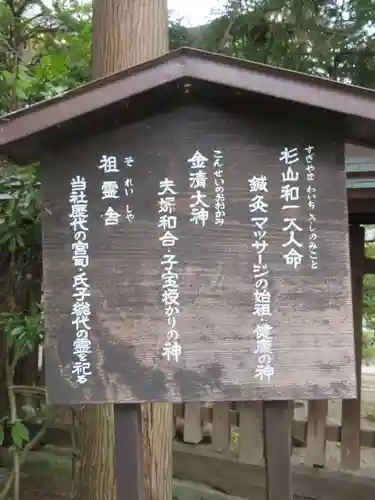 杉山和一大人命
すぎやま わいち うしのみこと
鍼灸マッサージの始祖・健康の神
金清大神
こんせいのおおかみ
夫婦和合・子宝授かりの神
祖霊舎
それいしや
当社歴代の宮司・氏子総代の霊を祀る